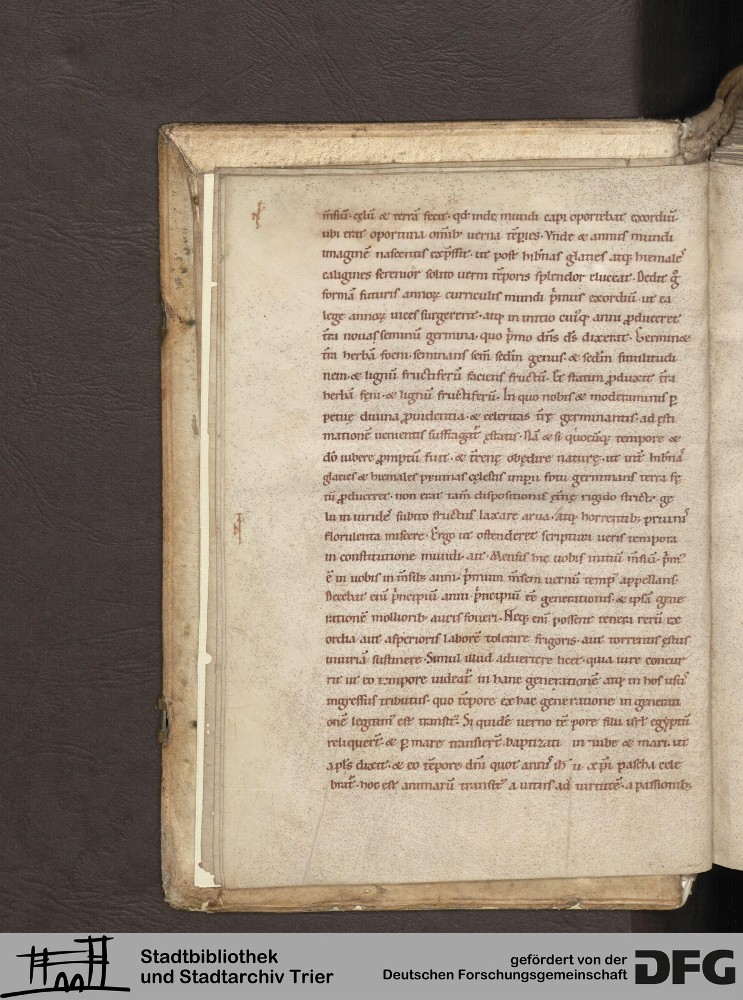 m̄siū· cęlū & terrā fecit· qđ inde mundi capi oportebat exordiū·
ubi erat oportuna omīb; uerna tēpies· Vnde & annus mundi
imaginē nascentis exp̄ssit· ut post hib̄nas glacies atq; hiemales
caligines serenior solito uerni tēporis splendor eluceat· Dedit g̊
formā futuris annoꝝ curriculis mundi p̄mus exordiū· ut ea
lege annoꝝ uices surgerent· atq; in initio cuiq; anni ꝓduceret
t̄ra nouas seminū germina· quo p̄mo dn̄s d̄s dixerat· Germinæ
t̄ra herbā foeni seminans sem̄ sedm̄ genus· & sedm̄ similitudi
nem· & lignū fructiferū faciens fructū· Et statim ꝓduxit t̄ra
herbā fęni· & lignū fructiferū· In quo nobis & moderaminis ꝑ
petuę diuina ꝓuidentia· & celeritas t̄rę germinantis· ad ęsti
mationē uenientis suffragat̄ ętatis· Nā & si quocūq; tempore &
dō iubere ꝓmptū fuit· & t̄renę obędire naturę· ut int̄ hib̄nas
glacies & hiemales pruinas cęlestis imperii fotu germinans terra fę
tū ꝓduceret· non erat tam̄ dispositionis ęt̄nę rigido stricta ge
lu in uiridēs subito fructus laxare arua· atq; horrentib; pruinis
florulenta miscere· Ergo ut ostenderet scriptura ueris tempora
in constitutione mundi· ait· Mensis hic uobis initiū m̄siū· p̄m⁹
ē in uobis in m̄sib; anni· p̄mum m̄sem uernū temp⁹ appellans·
Decebat enī p̄ncipiū anni p̄ncipiū ēē generationis· & ipsā gene
rationē mollioribꝫ auris foueri· Neq; enī possent tenera rerū ex
ordia aut asperioris laborē tolerare frigoris· aut torrentis ęstus
iniuriā sustinere· Simul illud aduertere licet· quia iure concur
rit ut eo tempore uideat̄ in hanc generationē atq; in hos usus
ingressus tributus· quo tēpore ex hac generatione in generati
onē legitim⁹ est transit⁹· Si quidē uerno tēpore filii isrl̄ egyptū
reliquer̄t· & ꝑ mare transier̄t baptizati in nube & mari· ut
apl̄s dixit· & eo tēpore dn̄i quot annis ih̄u xp̄i pascha cele
brat̄· hoc est animarū transit⁹ a uitiis ad uirtutē· a passionib;
Stadtbibliothek
und Stadtarchiv Trier
gefördert von der
Deutschen Forschungsgemeinschaft
DFG